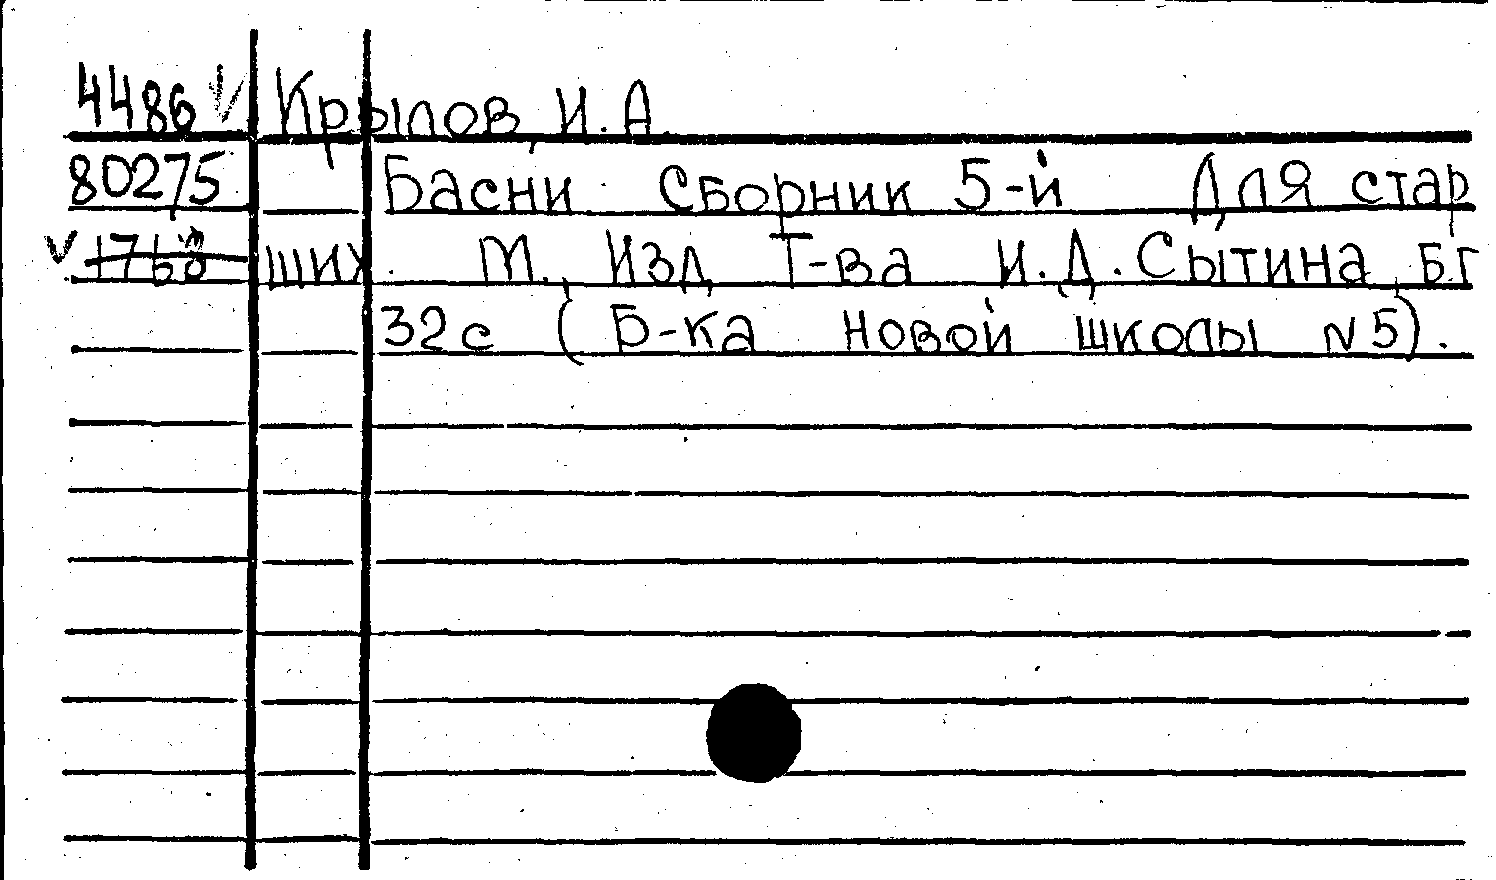 4486 V Крылов, И. А.
80275 Басни. Сборник 5-й Для стар
V ших. М., Изд. Т-ва И. Д. Сытина, БГ
32с (Б-ка новой школы N5).